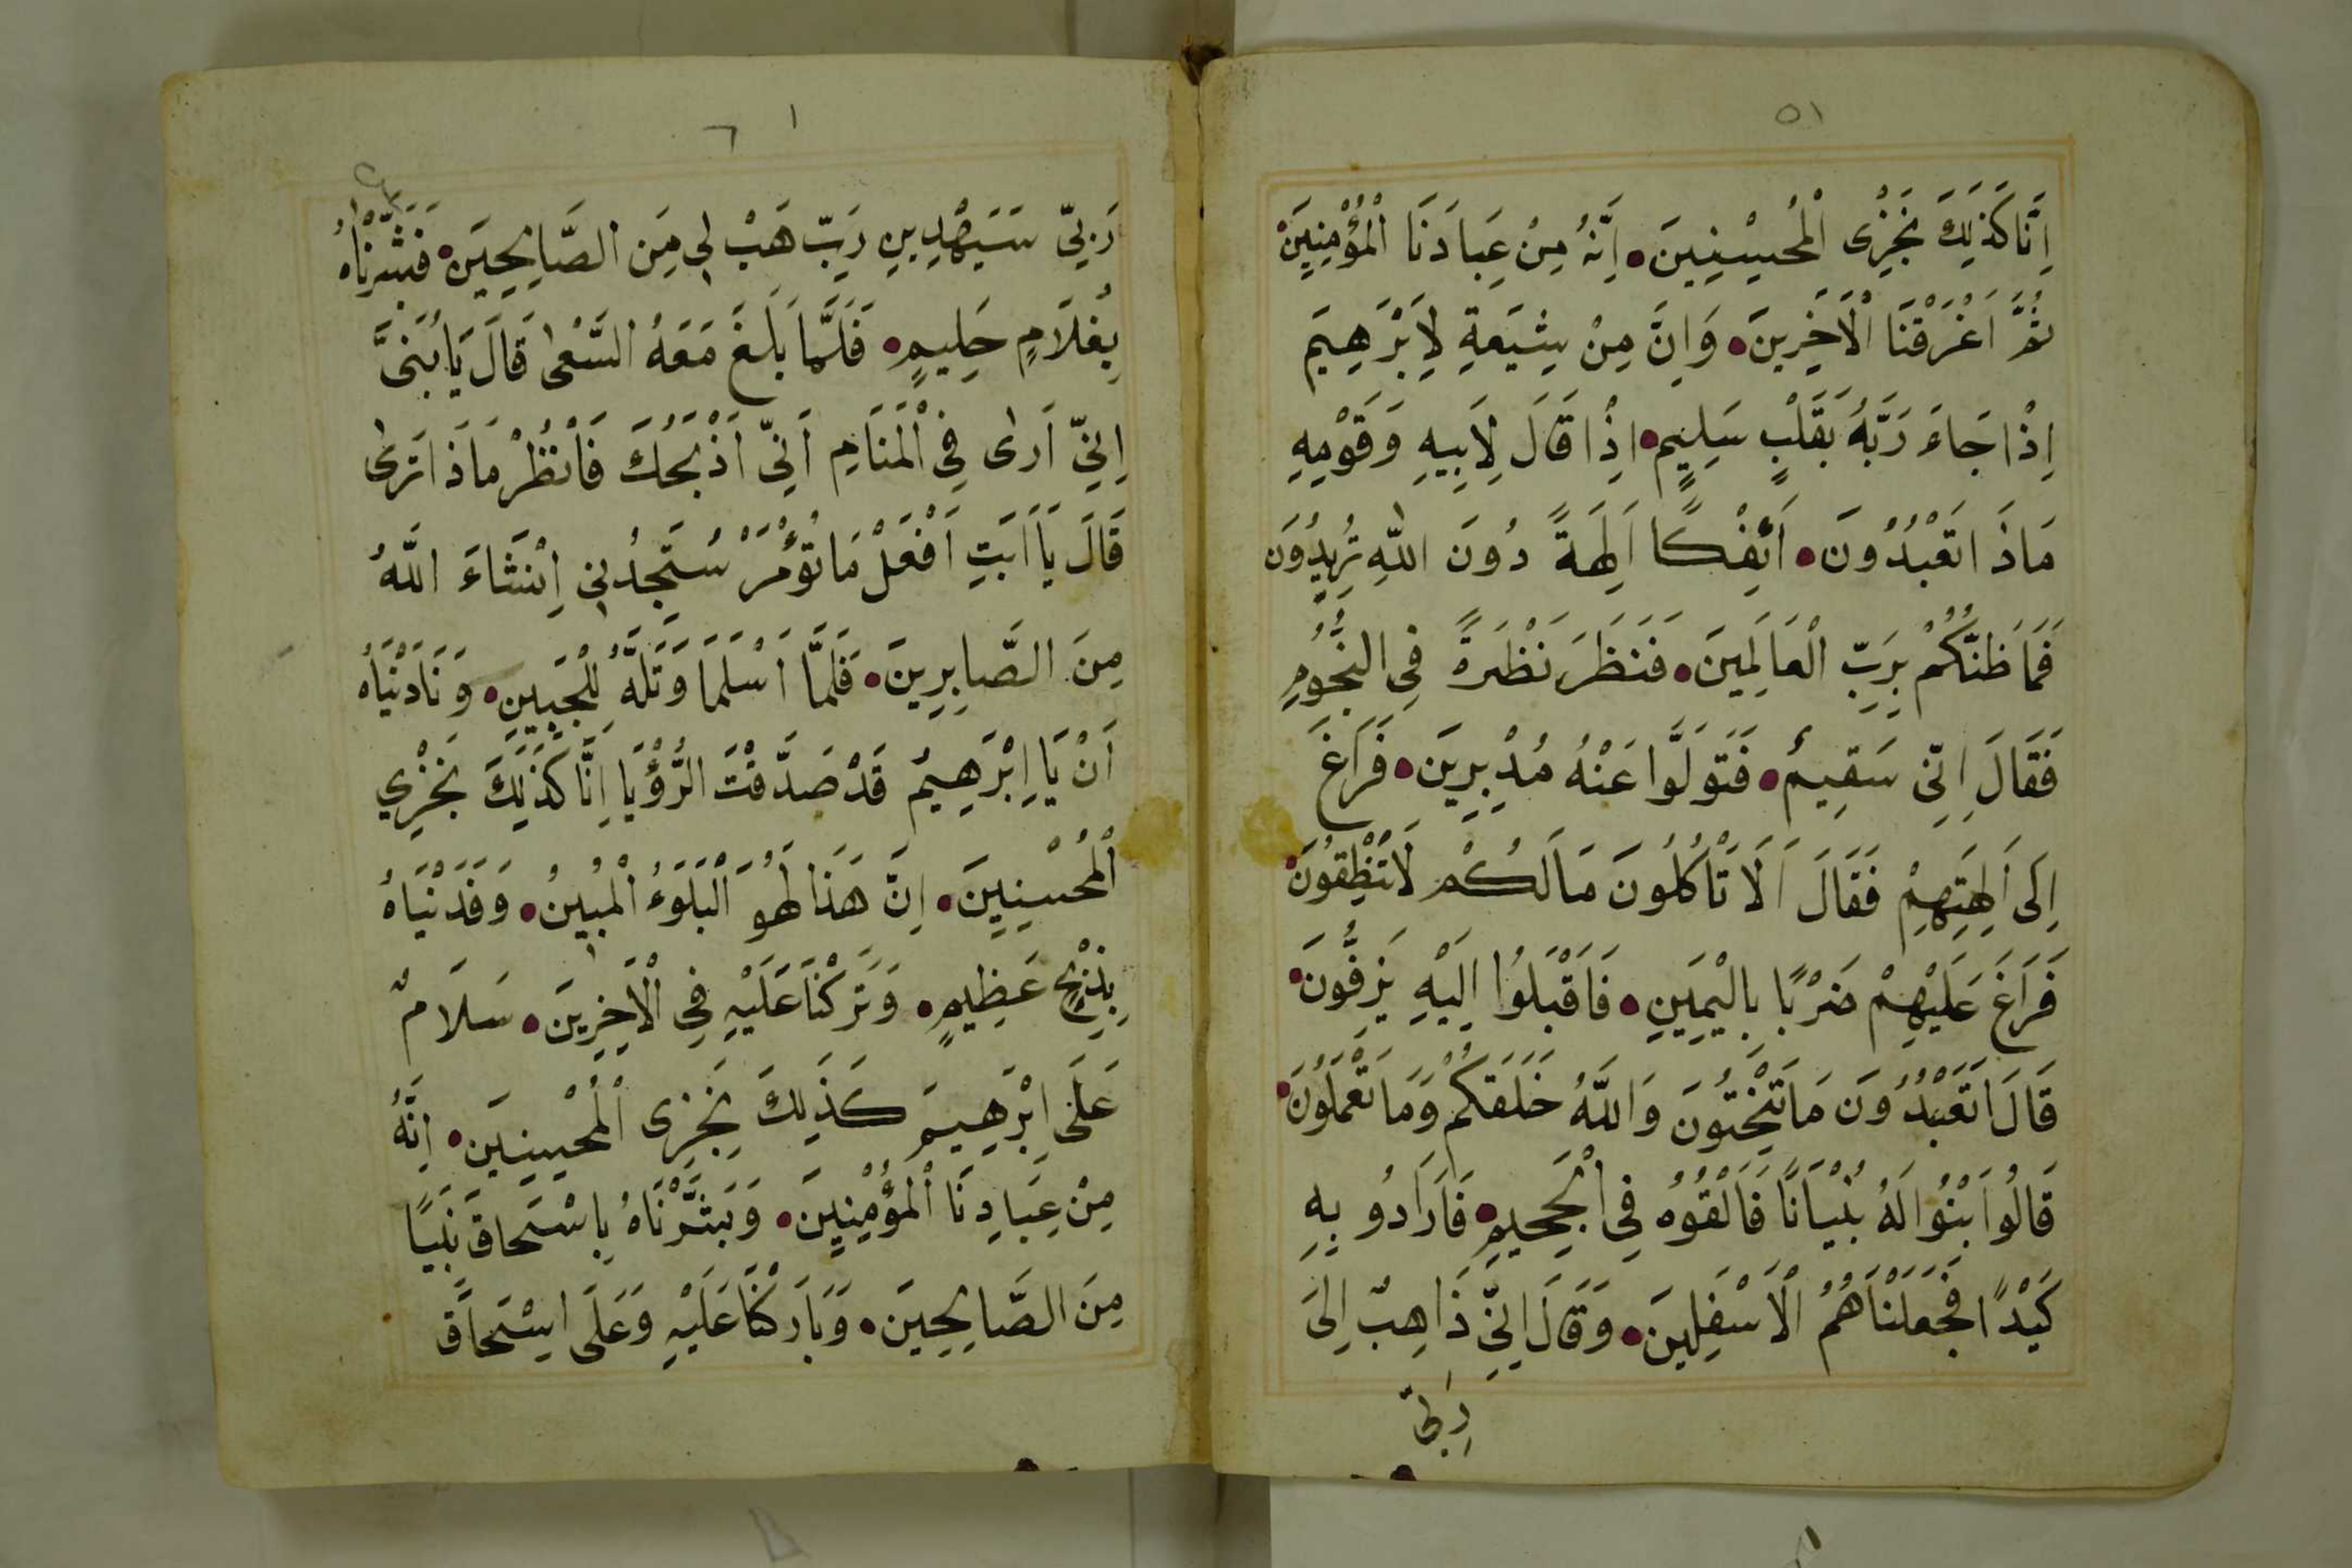 ٥١
اِنَّا كَذَلِكَ نَجْزِى الْمُحْسِنِينَ اِنَّهُ مِنْ عِبَادَنَا الْمُؤْمِنِينَ
ثُمَّ اَغْرَقْنَا الْاَخِرِينَ وَاِنَّ مِنْ شِيَعةِ لِاَبْرَهِيَم
اِذْ جَاءَ رَبَّهُ بَقَلْبٍ سَلِيمٍ اِذْ قَالَ لِاَبِيهِ وَقَوْمِهِ
مَاذَا تَعْبُدُونَ اَئِفْكًا اَلِهَةً دُونَ اللّٰهِ تُرِيدُونَ
فَمَا ظَنُّكُمْ بِرَبِّ الْعَالَمِينَ فَنَظَرَ نَظْرَةً فِى النُّجُومِ
فَقَالَ اِنِّى سَقِيمٌ فَتَوَلَّوا عَنْهُ مُدْبِرِينَ فَرَاغَ
اِلَى اَلِهَتِهِمْ فَقَالَ اَلَا تَأْكُلُونَ مَالَكُمْ لَاتَنْطِقُونَ
فَرَاغَ عَلَيْهِمْ ضَرْبًا بِالْيَمِينِ فَاَقْبَلُوا اِلَيْهِ يَزِفُّونَ
قَالَ اَتَعْبُدُونَ مَا تَنْحِتُونَ وَاللّٰهُ خَلَقَكُمْ وَمَا تَعْمَلُونَ
قَالُوا ابْنُوا لَهُ بُنْيَانًا فَاَلْقُوُهُ فِى الْجَحِيمِ فَاَرَادُو بِهِ
كَيْدًا فَجَعَلْنَاهُمُ الْاَسْفَلِينَ وَقَالَ اِنِّى ذَاهِبٌ اِلىَ
رَبِّى
٦ ١
رَبِّى سَيَهْدِينِ رَبِّ هَبْ لِى مِنَ الصَّالِحِينَ فَبَشَّرْنَاهُ
بِغُلَامٍ حَلِيمٍ فَلَمَّا بَلَغَ مَعَهُ السَّعْىَ قَالَ يَابُنَىَّ
اِنِّى اَرٰى فِى الْمَنَامِ اَنِّى اَذْبَحُكَ فَانْظُرْ مَاذَا تَرٰى
قَالَ يَااَبَتِ اَفْعَلْ مَاتُؤْمَرْ سَتَجِدُنِى اِنْشَاءَ اللّٰهُ
مِنَ الصَّابِرِينَ فَلَمَّا اَسْلَمَا وَتَلَّهُ لِلْجَبِينِ وَنَادَيْنَاهُ
اَنْ يَا اِبْرَهِيمُ قَدْ صَدَّقْتَ الرُّؤْيَا اِنَّا كَذَلِكَ نَجْزِي
الْمُحْسِنِينَ اِنَّ هَذَا لَهُوَ الْبَلَوءُ الْمُبِينُ وَفَدَيْنَاهُ
بِذِبْحٍ عَظِيمٍ وَتَرَكْنَا عَلَيْهِ فِى الْاَخِرِينَ سَلَامٌ
عَلَى اِبْرَهِيمَ كَذَلِكَ نَجْزِى الْمُحْسِنِينَ اِنَّهُ
مِنْ عِبَادِنَا الْمُؤْمِنِينَ وَبَشَّرْنَاهُ بِاِسْحَاقَ نَبِيًا
مِنَ الصَّالِحِينَ وَبَارَكْنَا عَلَيْهِ وَعَلَى اِسْحَاقَ